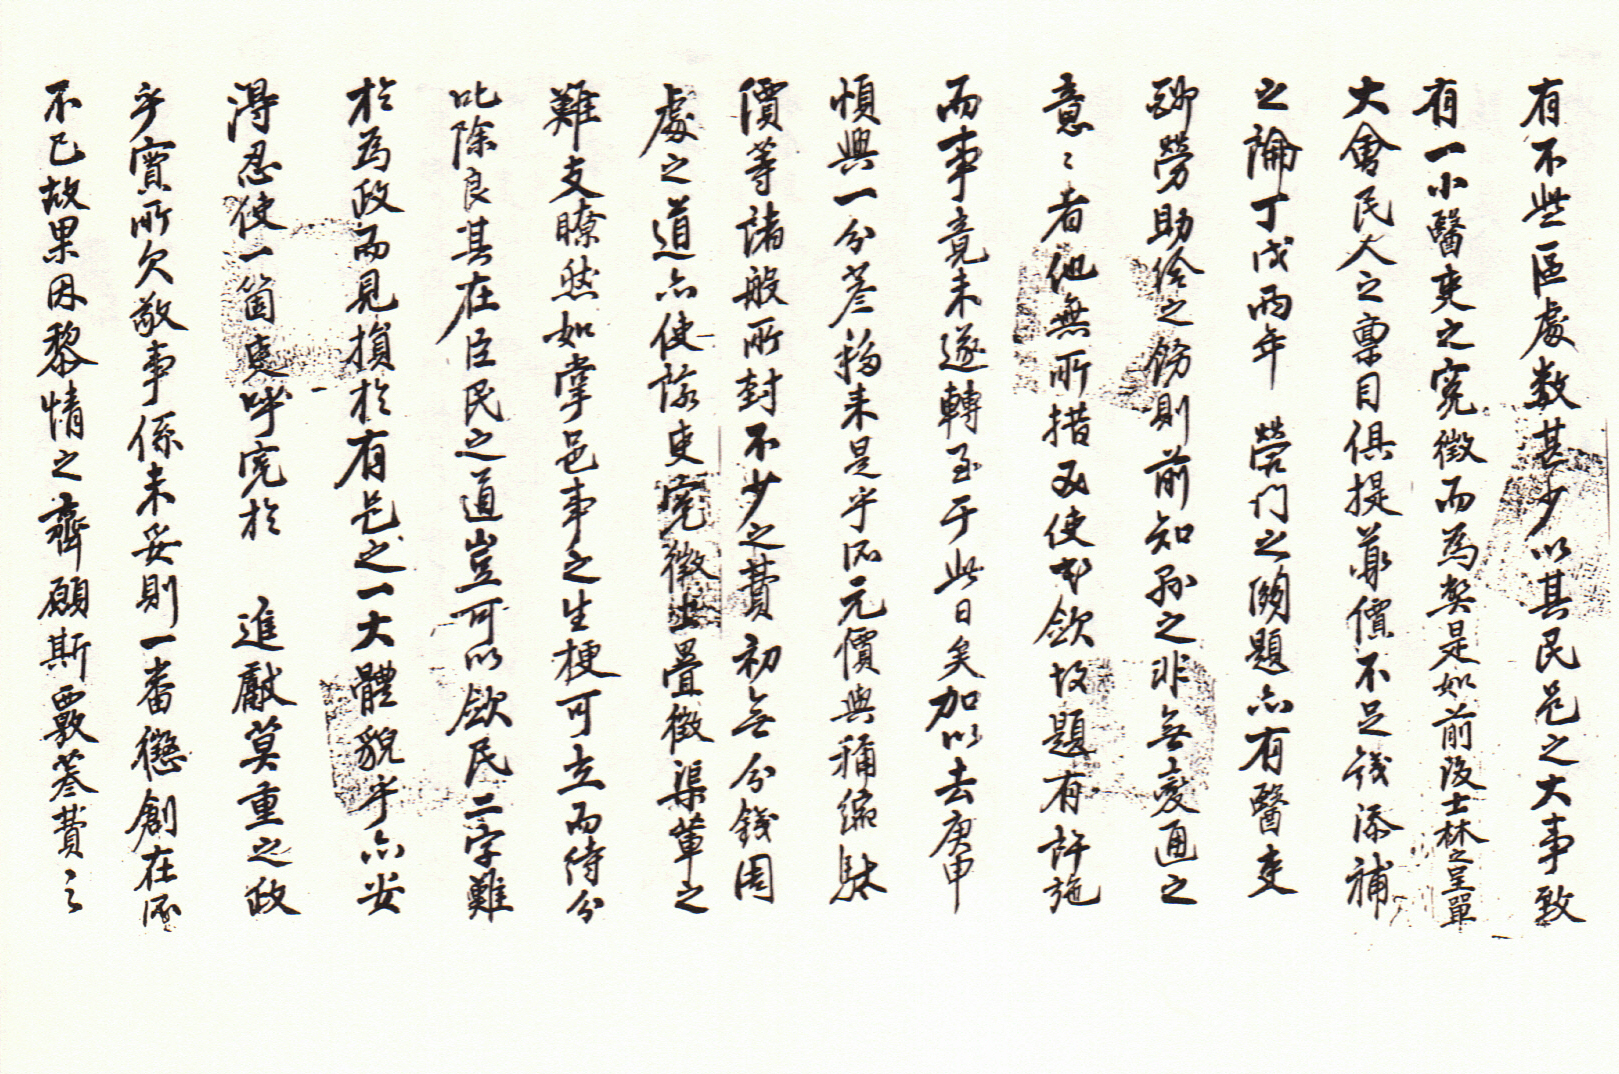 有不些區處數甚少以其民邑之大事致
有一小醫吏之寃徵而為獘是如前後士林之呈單
大會民人之稟目俱提蔘價不足錢添補
之論丁戊兩年 營門之題亦有醫吏
聊勞助給之餙則前知 之非無變通之
意〻者他無所措又使 斂故題有許施
而事竟未遂轉至于此日矣加以去庚申
恨與一分蔘務來是乎所元價與稱縮駄
價等諸般所封不少之費初無分錢周
處之道亦使該吏寃徵出疊徵渠輩之
難支瞭然如掌邑事之生梗可立而待分
叱除良其在臣民之道豈可以斂民二字難
於為政而見損於有邑之一大體貌乎亦安
淂忍使一箇吏呼寃於 進獻莫重之政
乎實所欠敬事係未妥則一番懲創在所
不已故果因黎情之齊願斯覈蔘費之